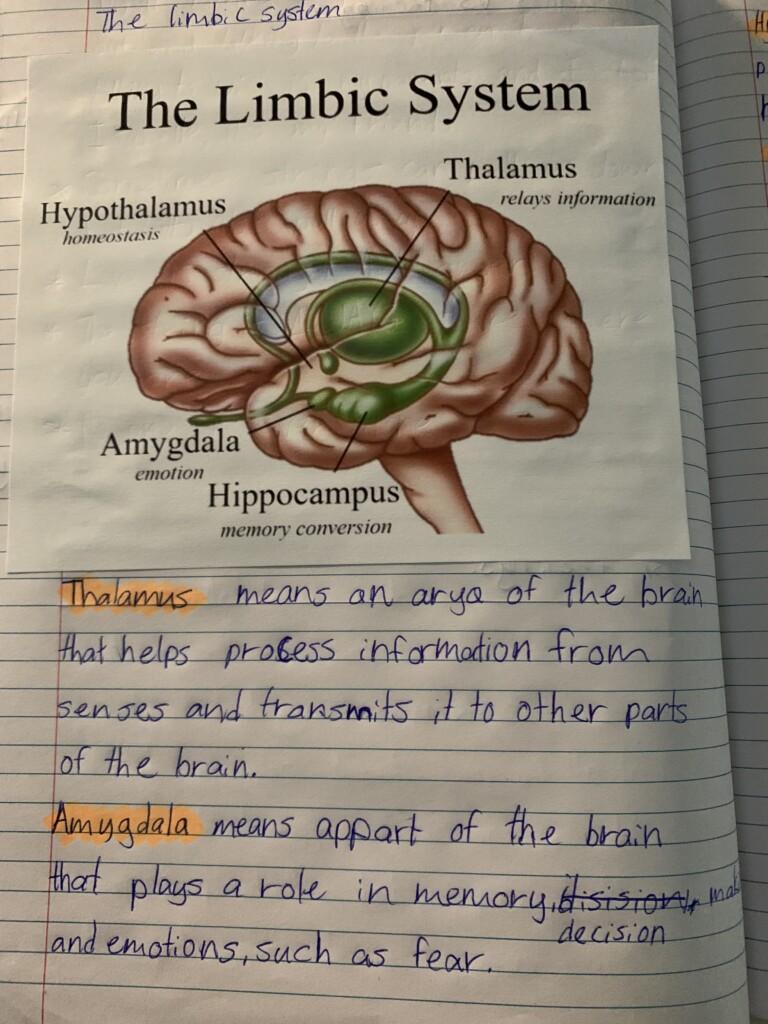 The limbic system
The Limbic System
Thalamus
relays information
Hypothalamus
homeostasis
Amygdala
emotion
Hippocampus
memory conversion
Thalamus means an arya of the brain
that helps process information from
senses and transmits it to other parts
of the brain.
Amygdala means appart of the brain
that plays a role in memory, disision,
decision
and emotions, such as fear.